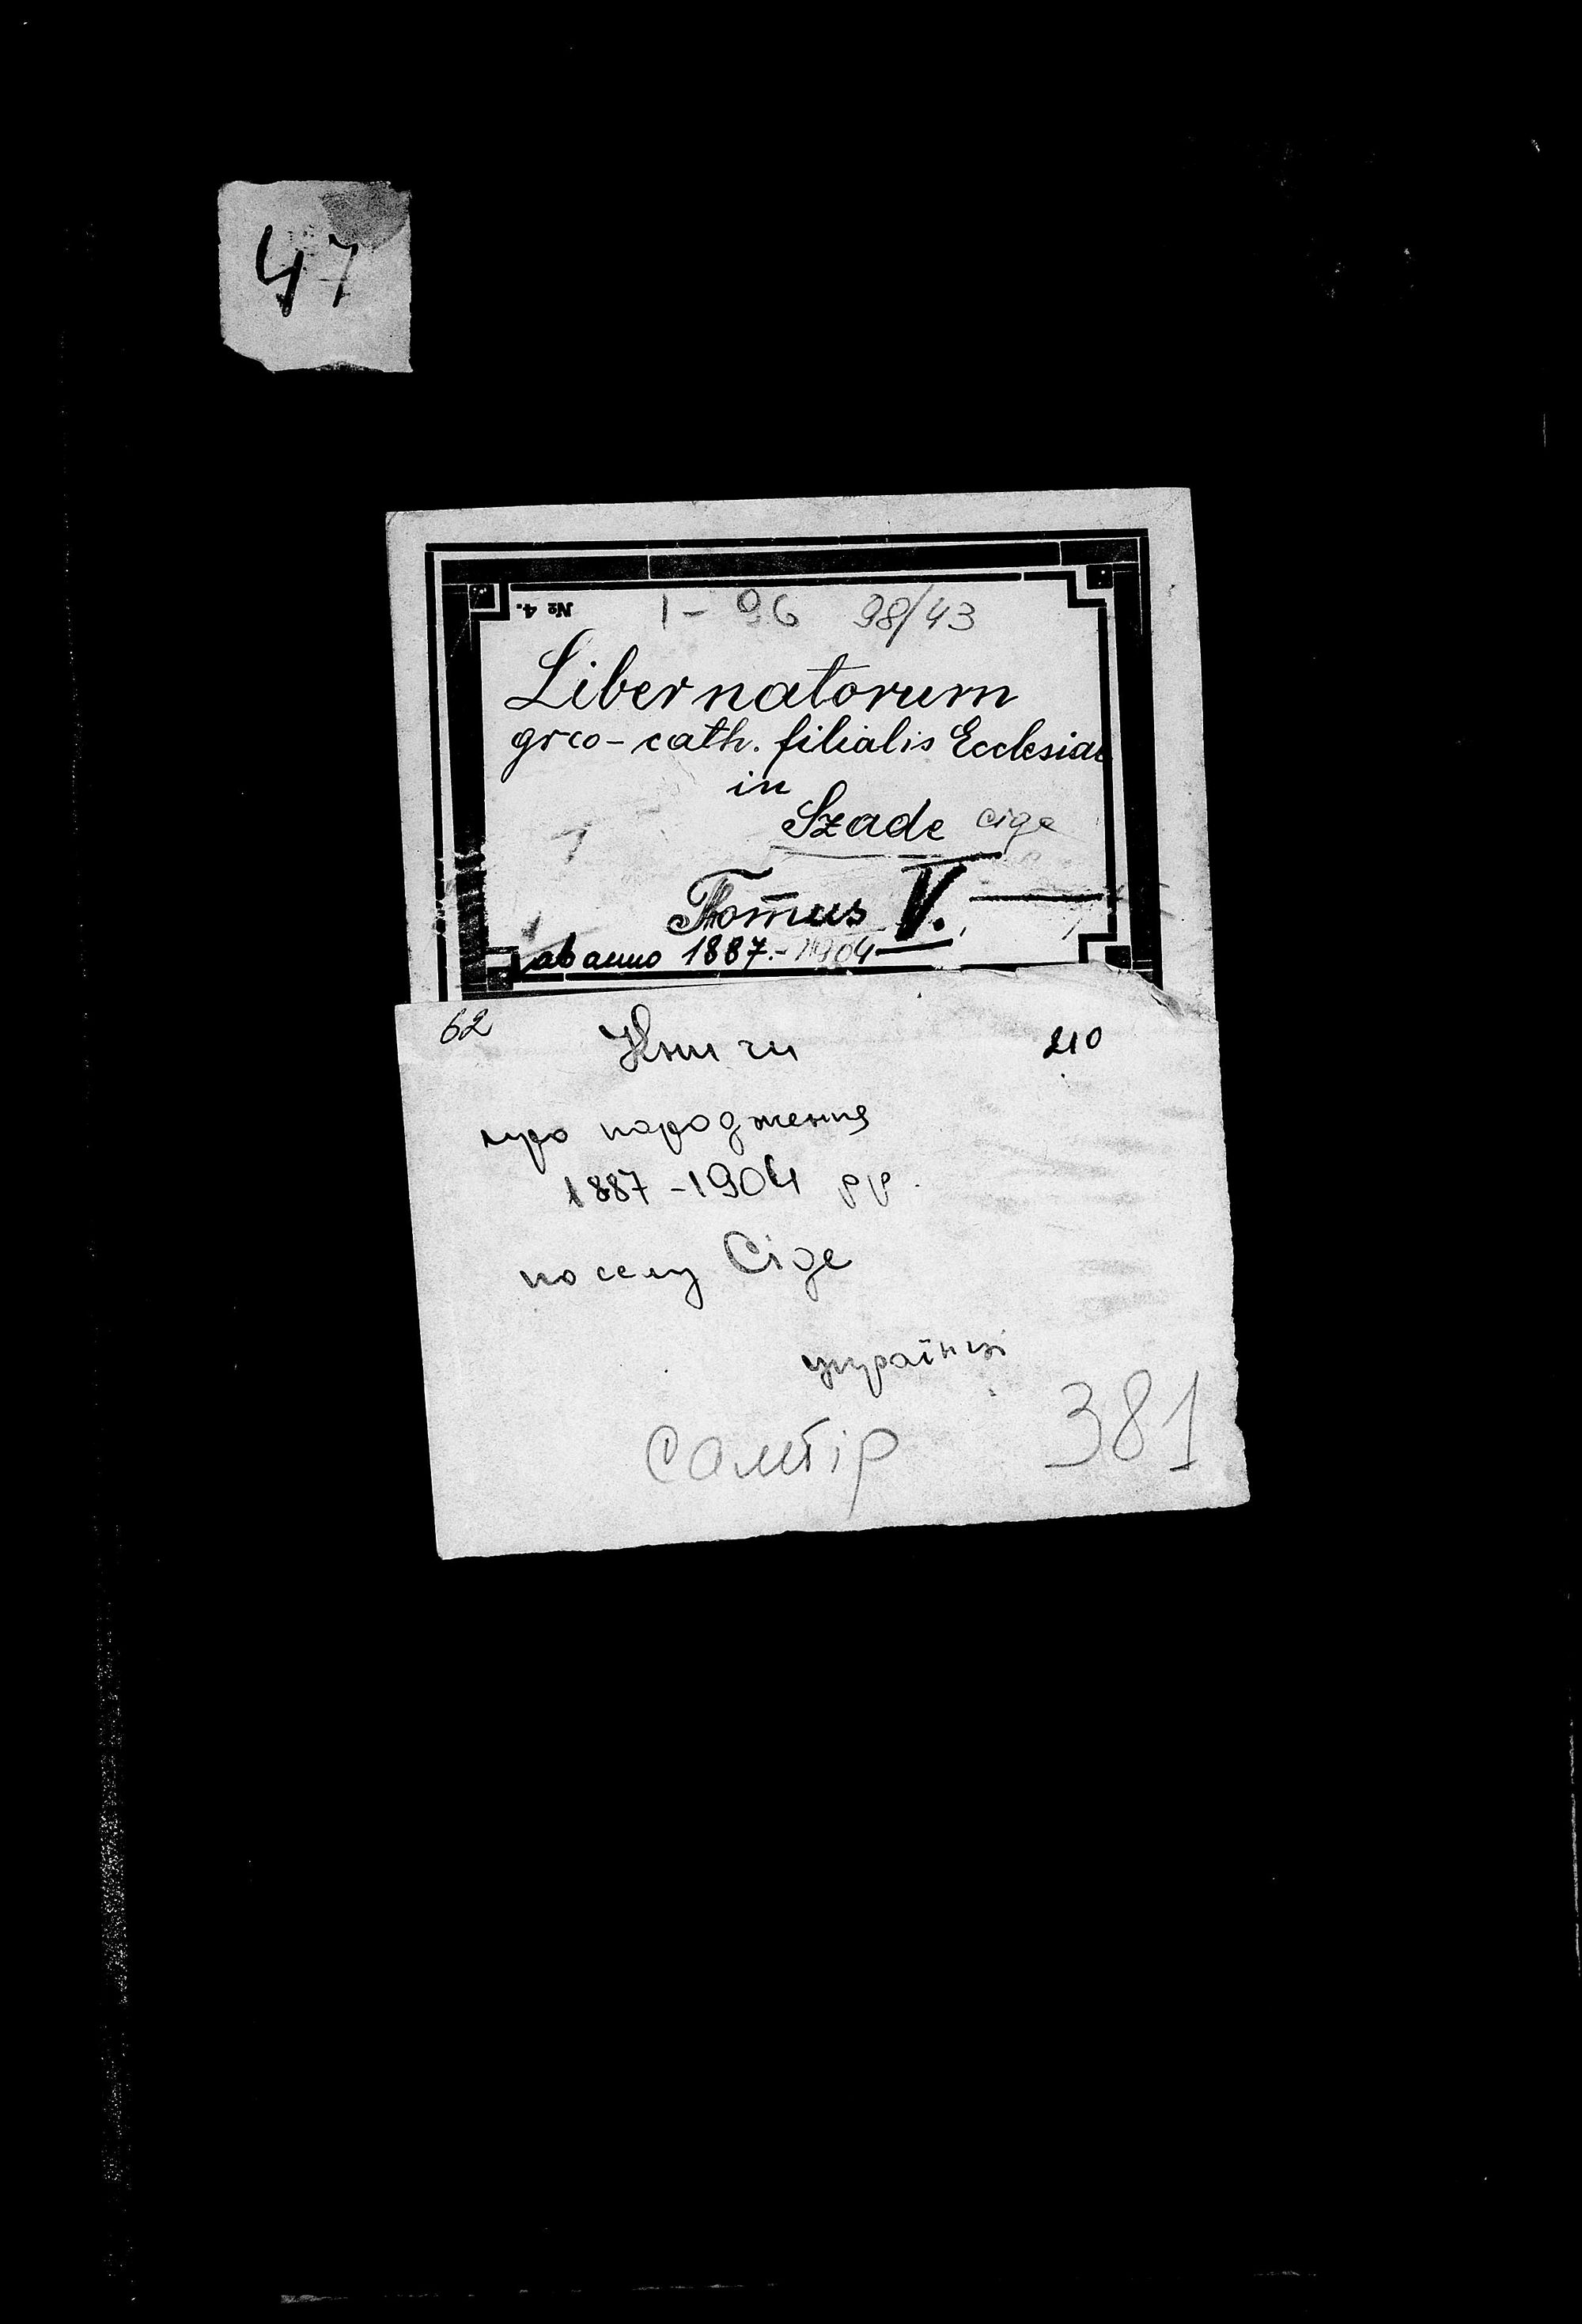 47
№ 4. 1-96 98/43
Liber natorum
grco-cath. filialis Ecclesiae
in
Szade сіде
Tomus V.
ab anno 1887.-1904
62 Книги 210
про народження
1887-1904 рр.
по селу Сіде
українці
Самбір 381